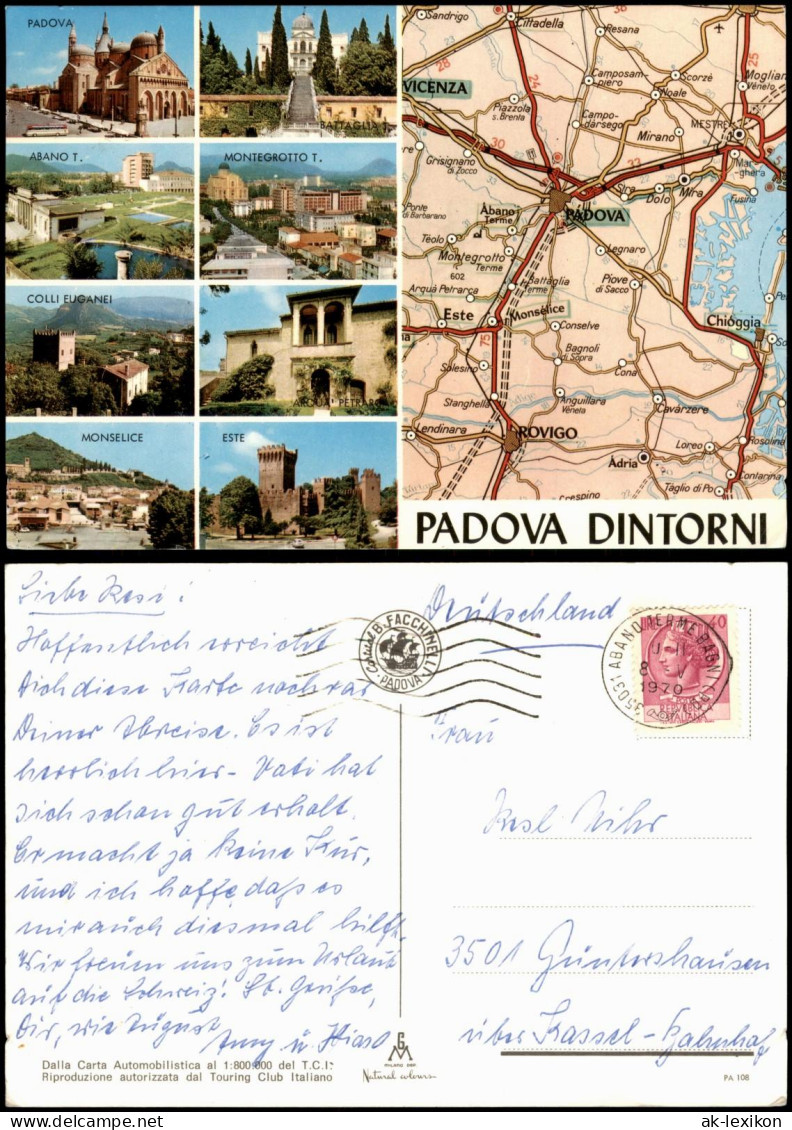 PADOVA
BATTAGLIA T.
ABANO T.
MONTEGROTTO T.
COLLI EUGANEI
ARQUA' PETRARCA
MONSELICE
ESTE
Sandrigo
Cittadella
Resana
VICENZA
Piazzola
s. Brenta
Camposam-
piero
Scorzè
Noale
Moglian
Veneto
Campo-
darsego
Mirano
MESTRE
Mar-
ghera
Grisignano
di Zocco
Ponte
di Barbarano
PADOVA
Stra
Dolo
Mira
Fusina
Àbano
Terme
Teolo
Legnaro
Montegrotto
Terme
602
Battàglia
Terme
Piove
di Sacco
Arquà Petrarca
Este
Monsélice
Conselve
Chióggia
Bagnoli
di Sopra
Cona
Solesino
Stanghella
Anguillara
Véneta
Cavàrzere
Lendinara
ROVIGO
Àdria
Loreo
Rosolina
Contarina
Taglio di Po
Crespino
PADOVA DINTORNI
Liebe Resi!
Hoffentlich erreicht
Dich diese Karte noch vor
Deiner Abreise. Es ist
herrlich hier - Vati hat
sich schon gut erholt.
Er macht ja keine Kur,
und ich hoffe, daß es
mir auch diesmal hilft.
Wir freuen uns zum Urlaub
auf die Schweiz! Grüße,
Dir, wie August
Deutschland
B. FACCHINELLI
PADOVA
35031 ABANO TERME BAGNI
8 V
1970
40
ITALIANA
Frau
Resl
3501 Guntershausen
über Kassel-Bahnhof
Dalla Carta Automobilistica al 1:800.000 del T.C.I.
Riproduzione autorizzata dal Touring Club Italiano
GM
Natural colours
PA 108
ak-lexikon